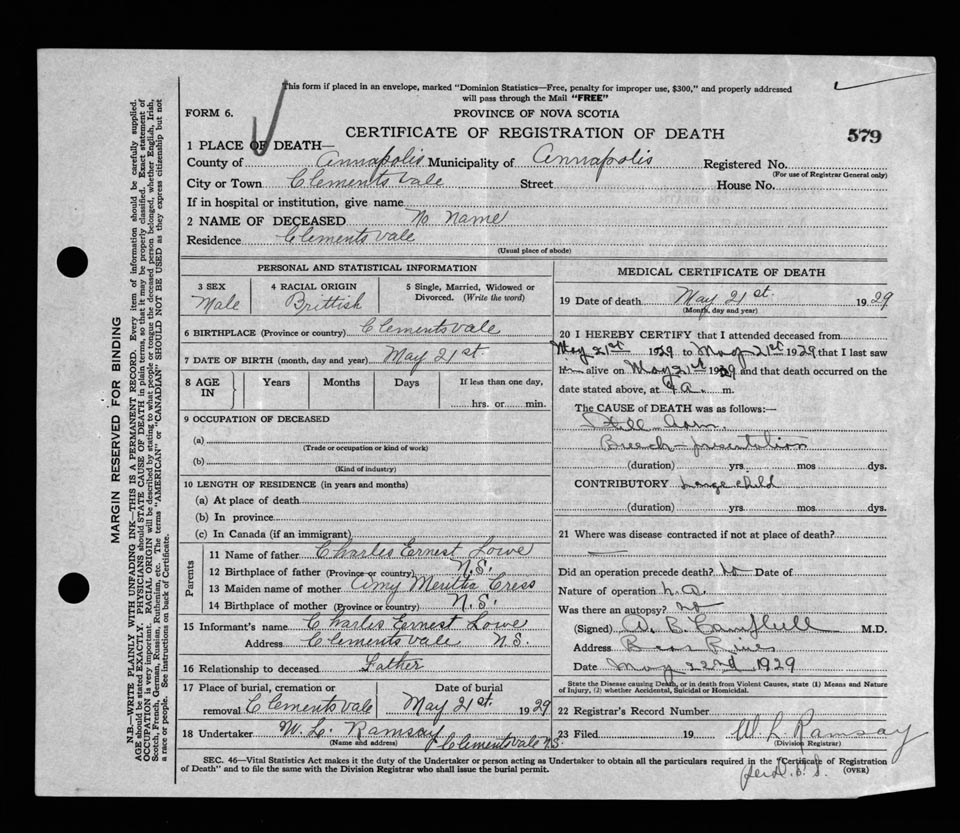 This form if placed in an envelope, marked "Dominion Statistics—Free, penalty for improper use, $300," and properly addressed
will pass through the Mail "FREE"
FORM 6.
PROVINCE OF NOVA SCOTIA
CERTIFICATE OF REGISTRATION OF DEATH
579
1 PLACE OF DEATH—
County of Annapolis Municipality of Annapolis Registered No.
(For use of Registrar General only)
City or Town Clementsvale Street House No.
If in hospital or institution, give name
2 NAME OF DECEASED No name
Residence Clementsvale
(Usual place of abode)
MARGIN RESERVED FOR BINDING
N.B.—WRITE PLAINLY WITH UNFADING INK—THIS IS A PERMANENT RECORD. Every item of information should be carefully supplied.
AGE should be stated EXACTLY. PHYSICIANS should STATE CAUSE OF DEATH in plain terms, so that it may be properly classified. Exact statement of
OCCUPATION is very important. RACIAL ORIGIN will be described by stating to what people or tongue the deceased person belonged, whether English, Irish,
Scotch, French, German, Russian, Ruthenian, etc. The terms "AMERICAN" or "CANADIAN" SHOULD NOT BE USED as they express citizenship but not
a race or people. See instructions on back of Certificate.
PERSONAL AND STATISTICAL INFORMATION
3 SEX
Male
4 RACIAL ORIGIN
Brittish
5 Single, Married, Widowed or
Divorced. (Write the word)
6 BIRTHPLACE (Province or country) Clementsvale
7 DATE OF BIRTH (month, day and year) May 21st
8 AGE
IN
Years
Months
Days
If less than one day,
hrs. or min.
9 OCCUPATION OF DECEASED
(a)
(Trade or occupation or kind of work)
(b)
(Kind of industry)
10 LENGTH OF RESIDENCE (in years and months)
(a) At place of death
(b) In province
(c) In Canada (if an immigrant)
Parents
11 Name of father Charles Ernest Lowe
12 Birthplace of father (Province or country) N.S.
13 Maiden name of mother Amy Cress
14 Birthplace of mother (Province or country) N.S.
15 Informant's name Charles Ernest Lowe
Address Clementsvale N.S.
16 Relationship to deceased Father
17 Place of burial, cremation or
removal Clementsvale
Date of burial
May 21st. 1929
18 Undertaker W. L. Ramsay
(Name and address) Clementsvale N.S.
MEDICAL CERTIFICATE OF DEATH
19 Date of death May 21st. 1929
(Month, day and year)
20 I HEREBY CERTIFY that I attended deceased from
May 21st 1929 to May 21st 1929 that I last saw
h alive on May 21st 1929 and that death occurred on the
date stated above, at a. m.
The CAUSE of DEATH was as follows:—
Still born.
Breech-presentation
(duration) yrs. mos dys.
CONTRIBUTORY Large child
(duration) yrs. mos dys.
21 Where was disease contracted if not at place of death?
Did an operation precede death? No Date of
Nature of operation
Was there an autopsy? No
(Signed) A. B. Campbell M.D.
Address Bear River
Date May 22nd 1929
State the Disease causing Death, or in death from Violent Causes, state (1) Means and Nature
of Injury, (2) whether Accidental, Suicidal or Homicidal.
22 Registrar's Record Number
23 Filed 19 W. L. Ramsay
(Division Registrar)
SEC. 46—Vital Statistics Act makes it the duty of the Undertaker or person acting as Undertaker to obtain all the particulars required in the "Certificate of Registration
of Death" and to file the same with the Division Registrar who shall issue the burial permit.
(OVER)